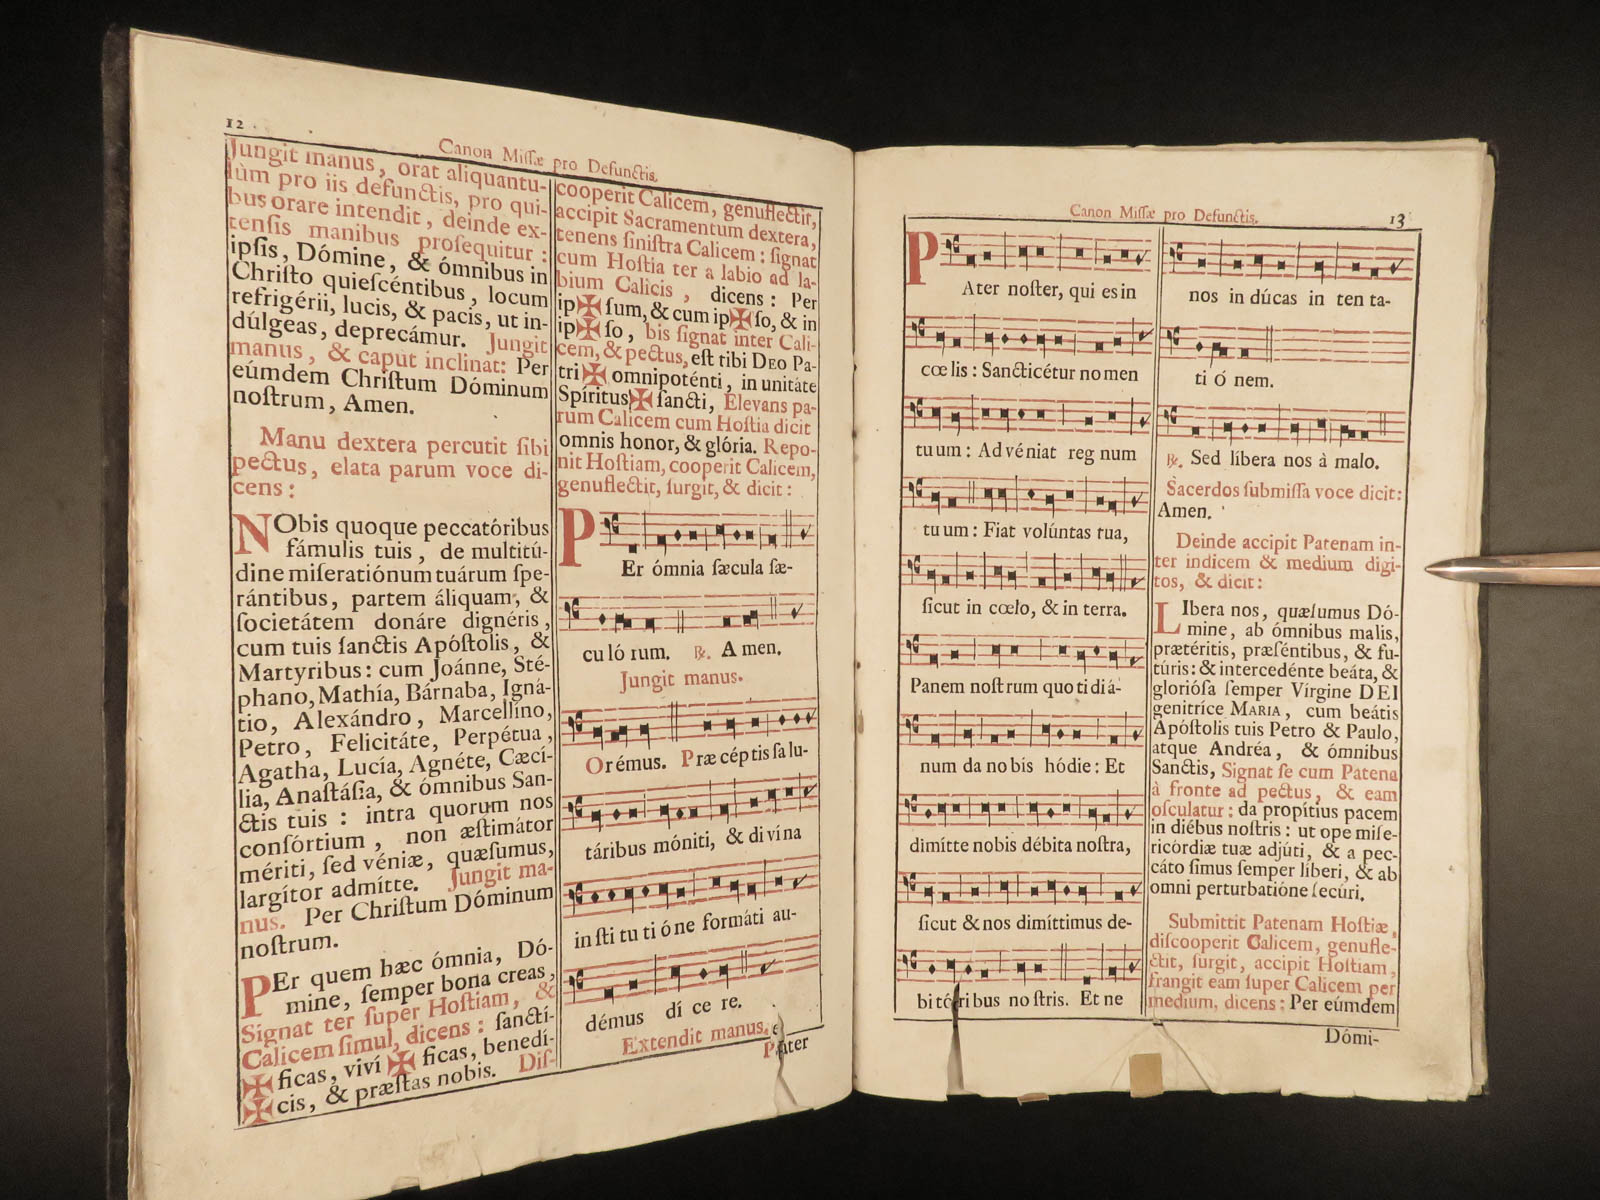 12
Canon Miſſæ pro Defunctis.
Jungit manus, orat aliquantu-
lùm pro iis defunctis, pro qui-
bus orare intendit, deinde ex-
tenſis manibus proſequitur:
ipſis, Dómine, & ómnibus in
Chriſto quieſcéntibus, locum
refrigérii, lucis, & pacis, ut in-
dúlgeas, deprecámur. Jungit
manus, & caput inclinat: Per
eúmdem Chriſtum Dóminum
noſtrum, Amen.
Manu dextera percutit ſibi
pectus, elata parum voce di-
cens:
NObis quoque peccatóribus
fámulis tuis, de multitú-
dine miſeratiónum tuárum ſpe-
rántibus, partem áliquam, &
ſocietátem donáre dignéris,
cum tuis ſanctis Apóſtolis, &
Martyribus: cum Joánne, Sté-
phano, Mathía, Bárnaba, Igná-
tio, Alexándro, Marcellíno,
Petro, Felicitáte, Perpétua,
Agatha, Lucía, Agnéte, Cæcí-
lia, Anaſtáſia, & ómnibus San-
ctis tuis: intra quorum nos
conſórtium, non æſtimátor
mériti, ſed véniæ, quæſumus,
largítor admítte. Jungit ma-
nus. Per Chriſtum Dóminum
noſtrum.
PEr quem hæc ómnia, Dó-
mine, ſemper bona creas,
Signat ter ſuper Hoſtiam, &
Calicem ſimul, dicens: ſanctí-
✠ ficas, viví ✠ ficas, benedí-
✠ cis, & præſtas nobis. Diſ-
cooperit Calicem, genuflectit,
accipit Sacramentum dextera,
tenens ſiniſtra Calicem: ſignat
cum Hoſtia ter a labio ad la-
bium Calicis, dicens: Per
ip✠ſum, & cum ip✠ſo, & in
ip✠ſo, bis ſignat inter Cali-
cem, & pectus, eſt tibi DEO Pa-
tri ✠ omnipoténti, in unitáte
Spíritus ✠ ſancti, Elevans pa-
rum Calicem cum Hoſtia dicit
omnis honor, & glória. Repo-
nit Hoſtiam, cooperit Calicem,
genuflectit, ſurgit, & dicit:
PEr ómnia ſæcula ſæ-
cu ló rum. ℟. A men.
Jungit manus.
Orémus. Præ cép tis ſa lu-
táribus móniti, & di vína
in ſti tu ti ó ne formáti au-
démus dí ce re.
Extendit manus,
Pater
Canon Miſſæ pro Defunctis.
13
PAter noſter, qui es in
cœ lis: Sanctificétur no men
tu um: Ad véniat reg num
tu um: Fiat volúntas tua,
ſicut in cœlo, & in terra.
Panem noſt rum quo ti di á-
num da no bis hódie: Et
dimítte nobis débita noſtra,
ſicut & nos dimíttimus de-
bi tó ri bus no ſtris. Et ne
nos in dúcas in ten ta-
ti ó nem.
℟. Sed líbera nos à malo.
Sacerdos ſubmiſſa voce dicit:
Amen.
Deinde accipit Patenam in-
ter indicem & medium digi-
tos, & dicit:
LIbera nos, quæſumus Dó-
mine, ab ómnibus malis,
prætéritis, præſéntibus, & fu-
túris: & intercedénte beáta, &
glorióſa ſemper Vírgine DEI
genitríce MARIA, cum beátis
Apóſtolis tuis Petro & Paulo,
atque Andréa, & ómnibus
Sanctis, Signat ſe cum Patena
à fronte ad pectus, & eam
oſculatur: da propítius pacem
in diébus noſtris: ut ope miſe-
ricórdiæ tuæ adjúti, & a pec-
cáto ſimus ſemper líberi, & ab
omni perturbatióne ſecúri.
Submittit Patenam Hoſtiæ,
diſcooperit Calicem, genufle-
ctit, ſurgit, accipit Hoſtiam,
frangit eam ſuper Calicem per
medium, dicens: Per eúmdem
Dómi-